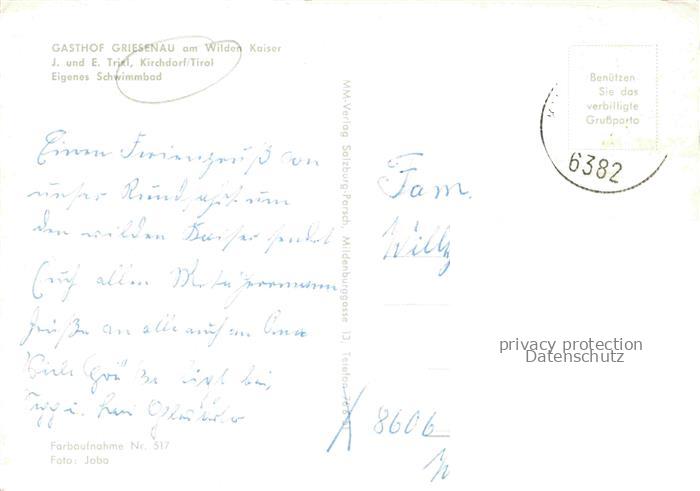 GASTHOF GRIESENAU am Wilden Kaiser
J. und E. Trixl, Kirchdorf/Tirol
Eigenes Schwimmbad
Benützen
Sie das
verbilligte
Grußporto
6382
MM-Verlag Salzburg-Parsch, Mildenburggasse 13, Telefon
Einen Feriengruß von
unser Rundfahrt um
den wilden Kaiser sendet
Euch allen
Grüße an alle auch an
Viele Grüße
Fam.
Willy
8606
privacy protection
Datenschutz
Farbaufnahme Nr. 517
Foto: Joba